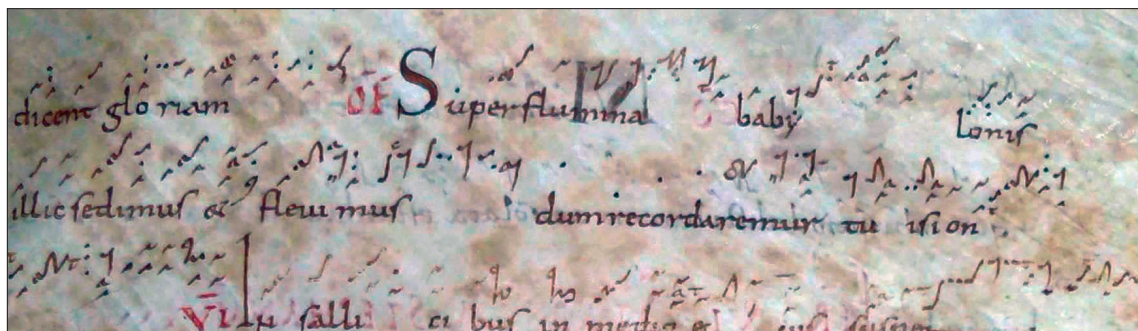 dicent glo riam OF Super flumina baby lonis
illic sedimus & flevi mus dum recordaremur tu i sion
VI In salli ci bus in medio e ius suspen